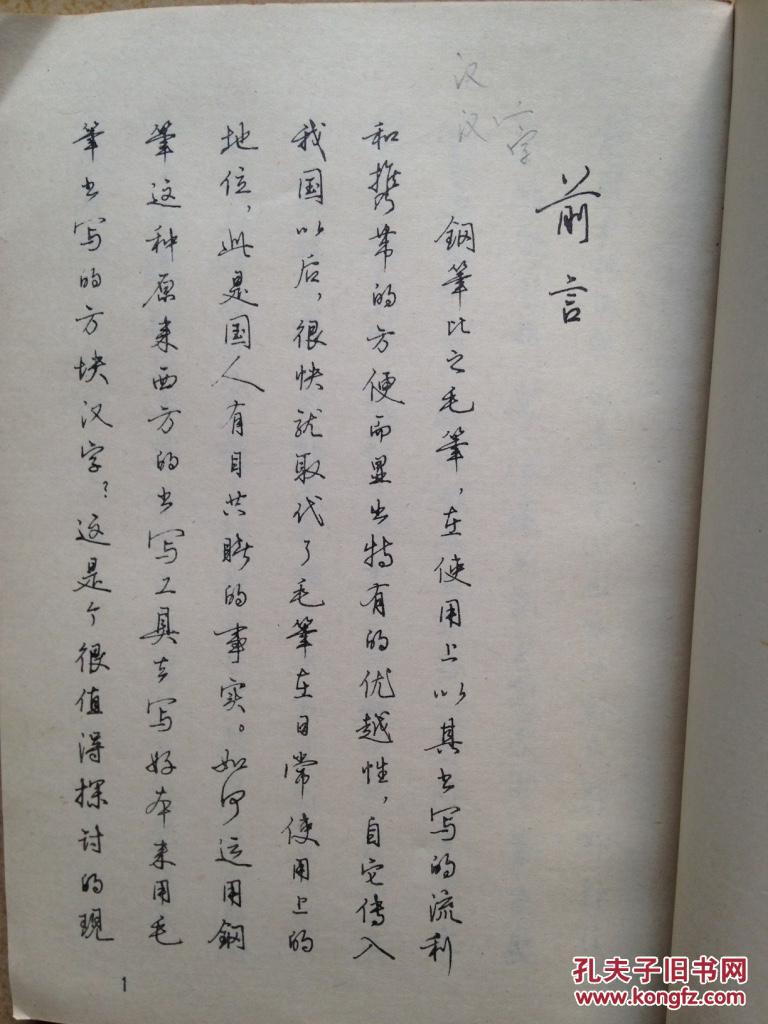 汉
汉字
前言
鋼筆比之毛筆，在使用上以其书写的流利
和携带的方便而显出特有的优越性，自它传入
我国以后，很快就取代了毛筆在日常使用上的
地位，此是国人有目共睹的事实。如何运用鋼
筆这种原来西方的书写工具去写好本来用毛
筆书写的方块汉字？这是个很值得探讨的现
1
孔夫子旧书网
www.kongfz.com